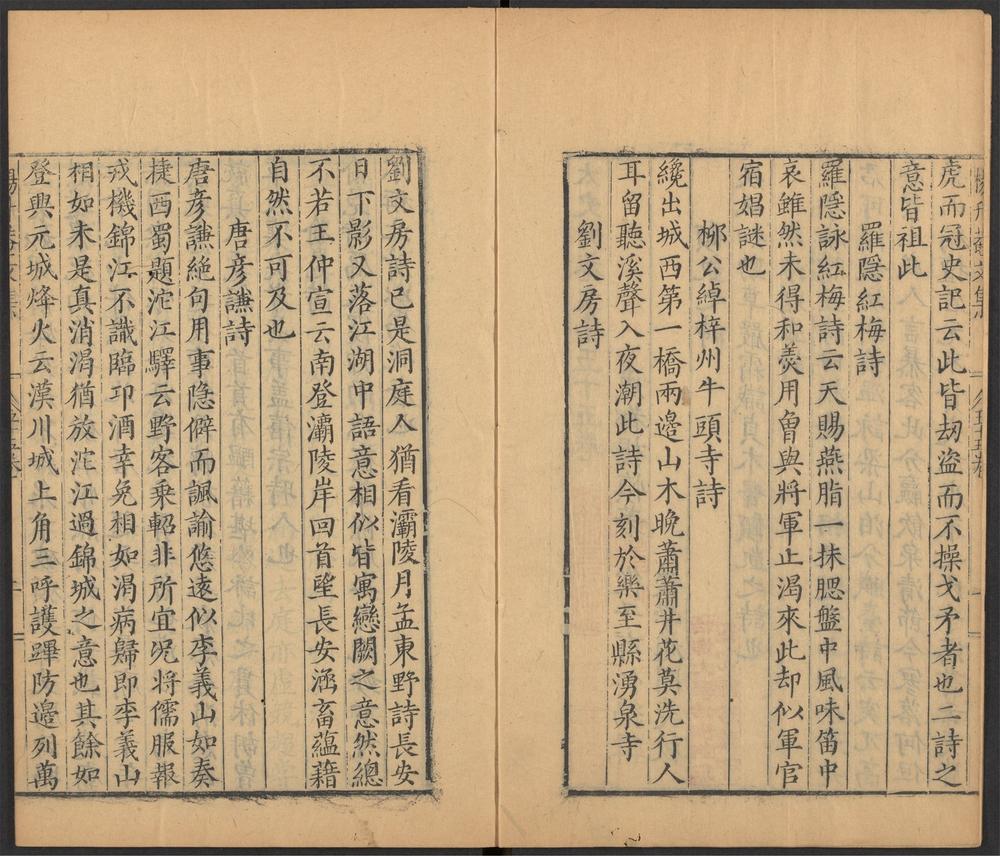 虎而冠史記云此皆刼盗而不操戈矛者也二詩之
意皆祖此
羅隱紅梅詩
羅隱詠紅梅詩云天賜燕脂一抹腮盤中風味笛中
哀雖然未得和羹用曽與將軍止渴來此却似軍官
宿娼謎也
栁公綽梓州牛頭寺詩
纔出城西第一橋兩邊山木晚蕭蕭井花莫洗行人
耳留聽溪聲入夜潮此詩今刻於樂至縣湧泉寺
劉文房詩
劉文房詩已是洞庭人猶看灞陵月孟東野詩長安
日下影又落江湖中語意相似皆寓戀闕之意然總
不若王仲宣云南登灞陵岸回首望長安涵畜蘊藉
自然不可及也
唐彦謙詩
唐彦謙絶句用事隐僻而諷諭悠遠似李義山如奏
捷西蜀題沱江驛云野客乘軺非所宜况将儒服報
戎機錦江不識臨卭酒幸免相如渴病歸即李義山
相如未是真消渴猶放沱江過錦城之意也其餘如
登興元城烽火云漢川城上角三呼護蹕防邉列萬